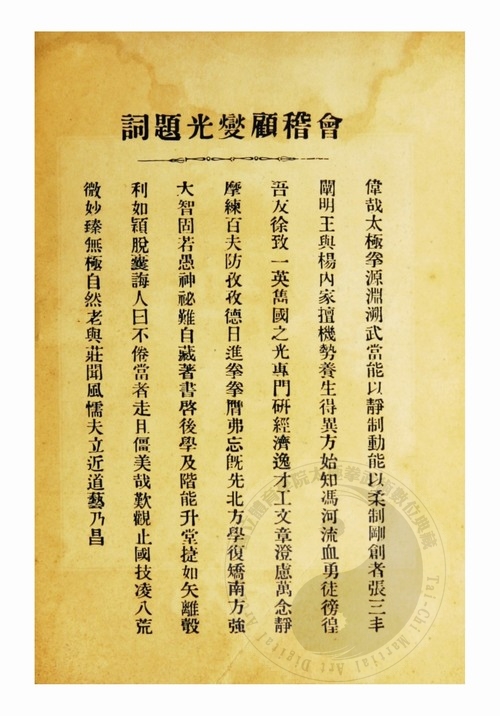 會稽顧燮光題詞
偉哉太極拳源淵溯武當能以靜制動能以柔制剛創者張三丰
闡明王與楊內家擅機勢養生得異方始知馮河流血勇徒徬徨
吾友徐致一英雋國之光專門研經濟逸才工文章澄慮萬念靜
摩練百夫防孜孜德日進拳拳膺弗忘既先北方學復矯南方強
大智固若愚神祕難自藏著書啓後學及階能升堂捷如矢離彀
利如穎脫囊誨人曰不倦當者走且僵美哉歎觀止國技凌八荒
微妙臻無極自然老與莊聞風懦夫立近道藝乃昌
Tai-Chi Martial Art Digital